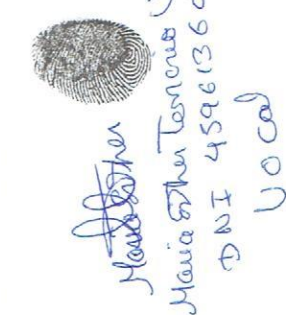 Maria Esther
Maria Esther Tenorio
DNI 45961360
Vocal